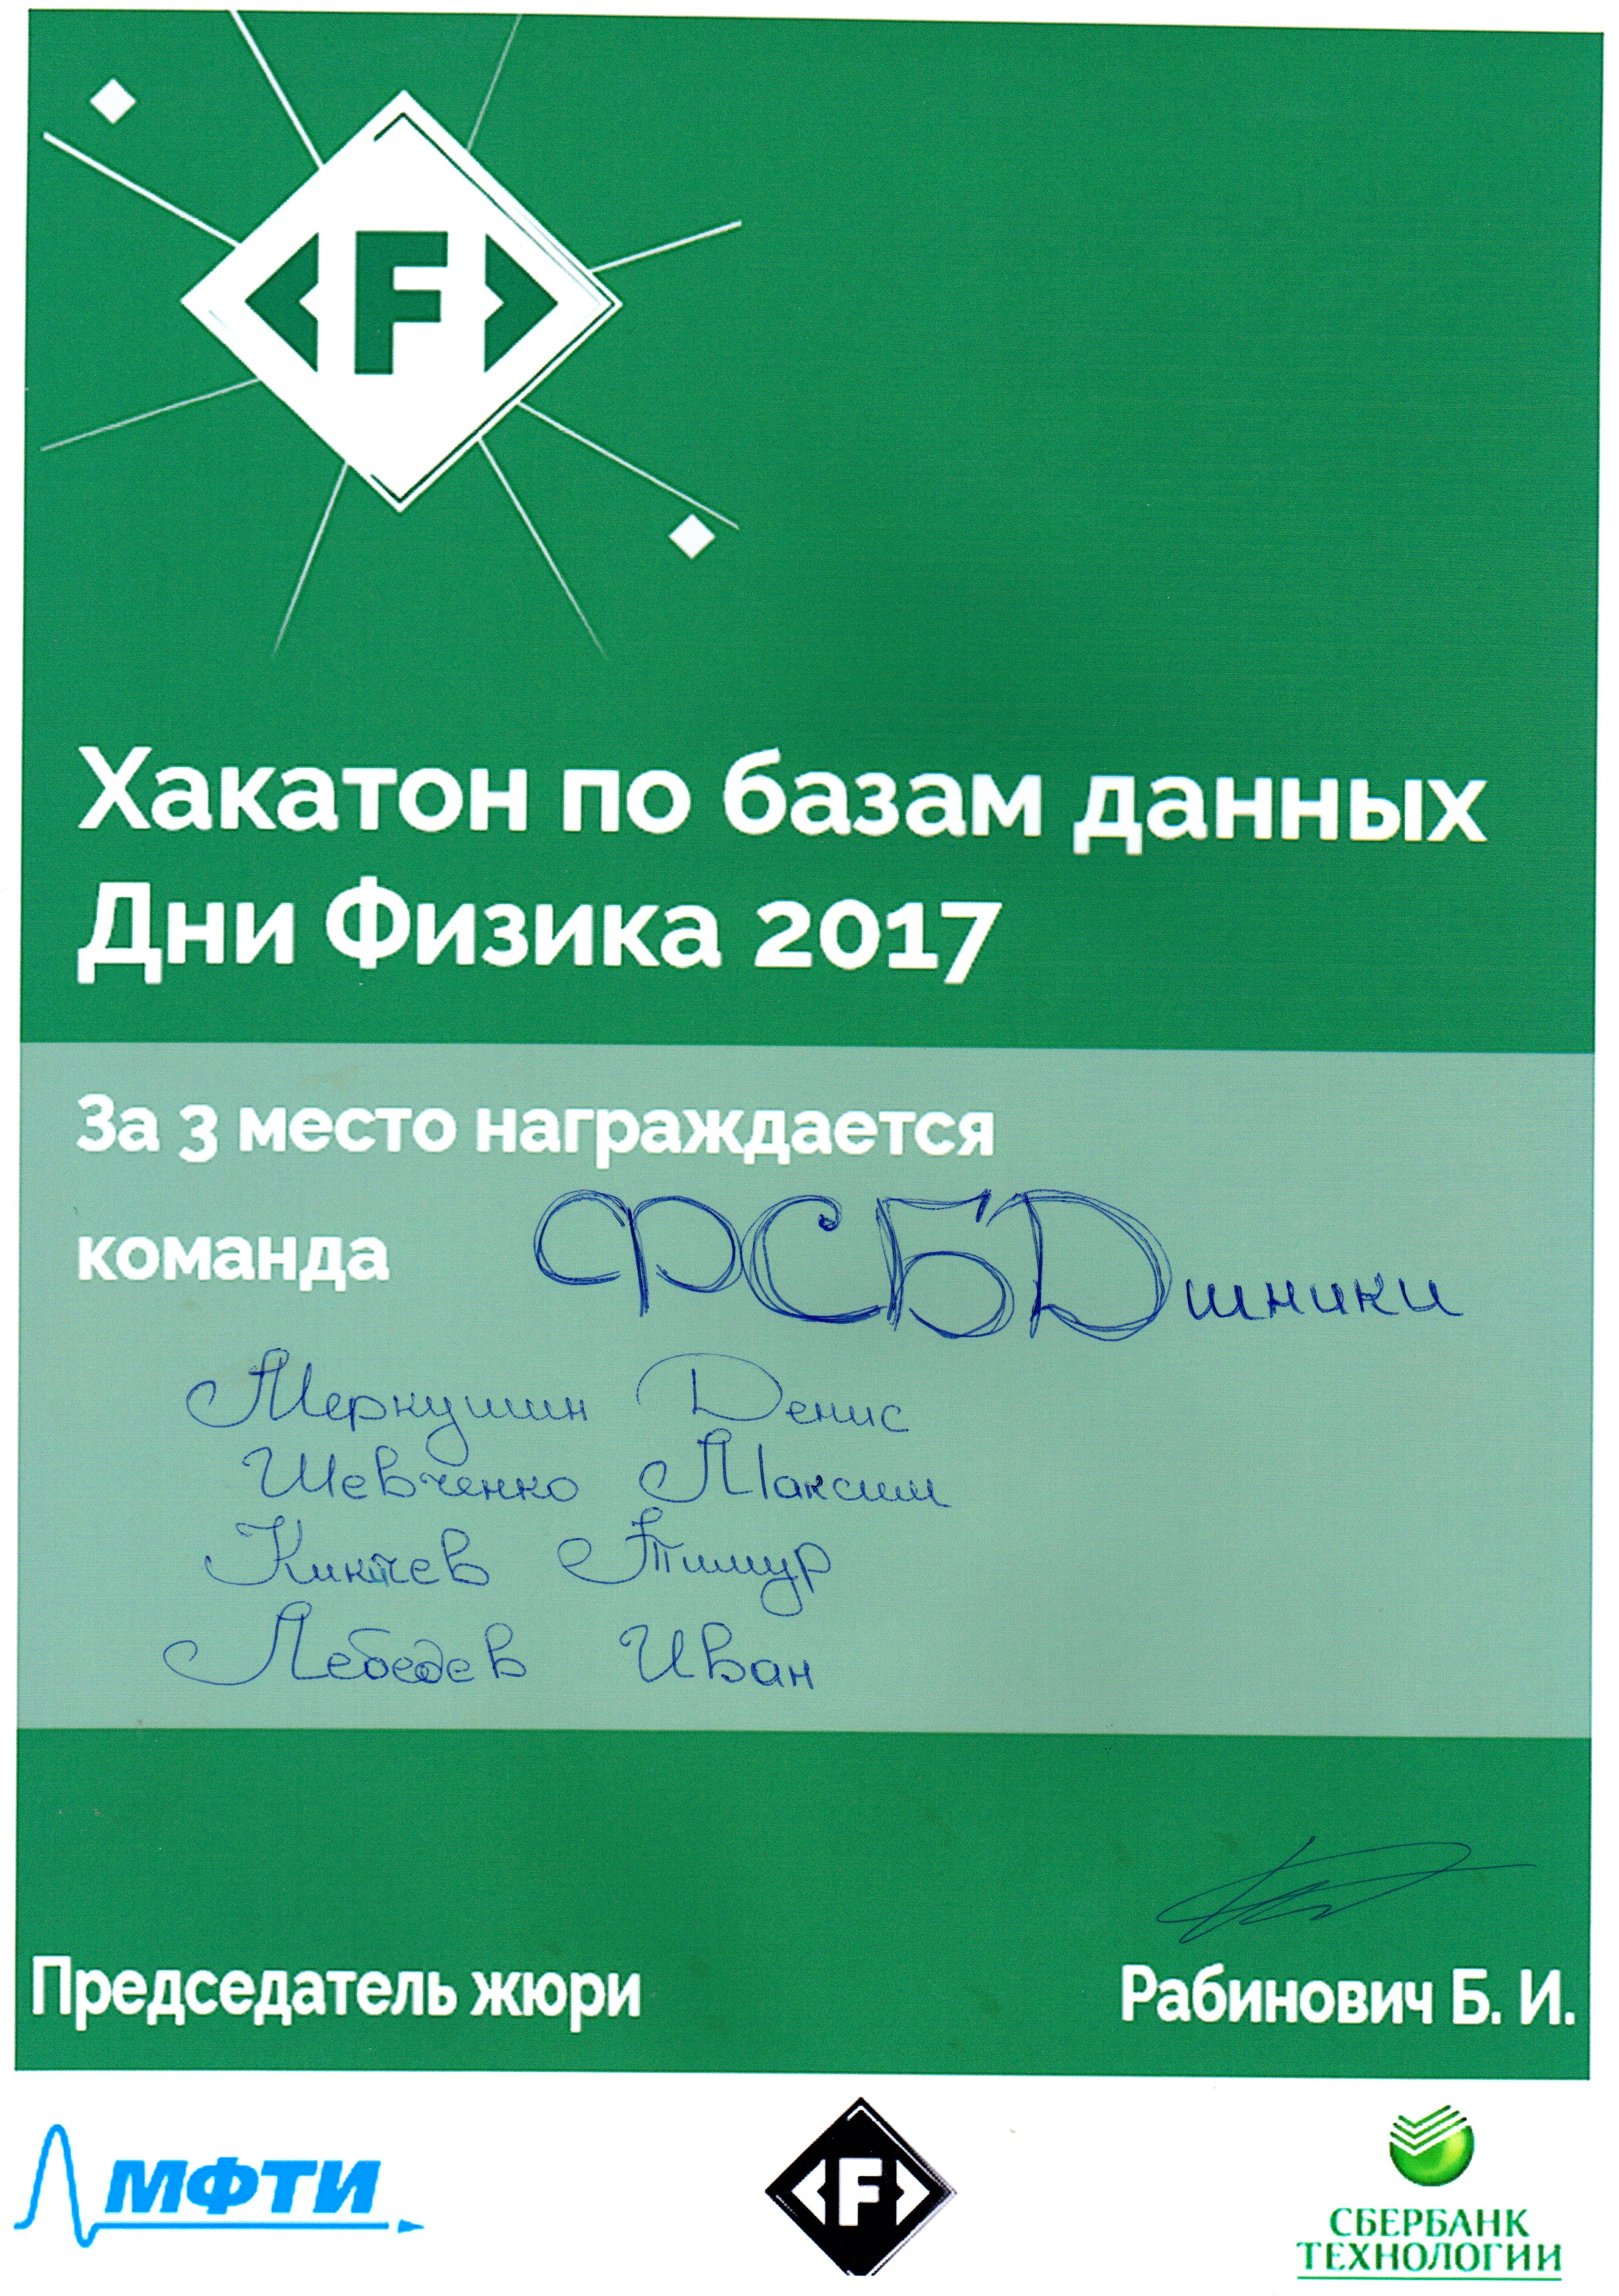 <F>
Хакатон по базам данных
Дни Физика 2017
За 3 место награждается
команда ФСБДшники
Меркушин Денис
Шевченко Максим
Киктев Тимур
Лебедев Иван
Председатель жюри Рабинович Б. И.
МФТИ
<F>
СБЕРБАНК
ТЕХНОЛОГИИ